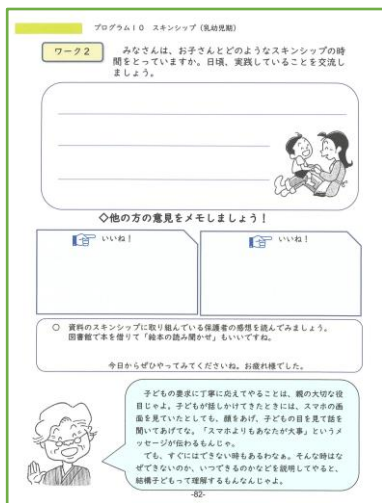 プログラム10 スキンシップ(乳幼児期)
ワーク2
みなさんは、お子さんとどのようなスキンシップの時
間をとっていますか。日頃、実践していることを交流し
ましょう。
◇他の方の意見をメモしましょう!
いいね!
いいね!
○ 資料のスキンシップに取り組んでいる保護者の感想を読んでみましょう。
図書館で本を借りて「絵本の読み聞かせ」もいいですね。
今日からぜひやってみてくださいね。お疲れ様でした。
子どもの要求に丁寧に応えてやることは、親の大切な役
目じゃよ。子どもが話しかけてきたときには、スマホの画
面を見ていたとしても、顔をあげ、子どもの目を見て話を
聞いてあげてな。「スマホよりもあなたが大事」というメ
ッセージが伝わるもんじゃ。
でも、すぐにはできない時もあるわなぁ。そんな時はな
ぜできないのか、いつできるのかなどを説明してやると、
結構子どもって理解するもんなんじゃよ。
-82-